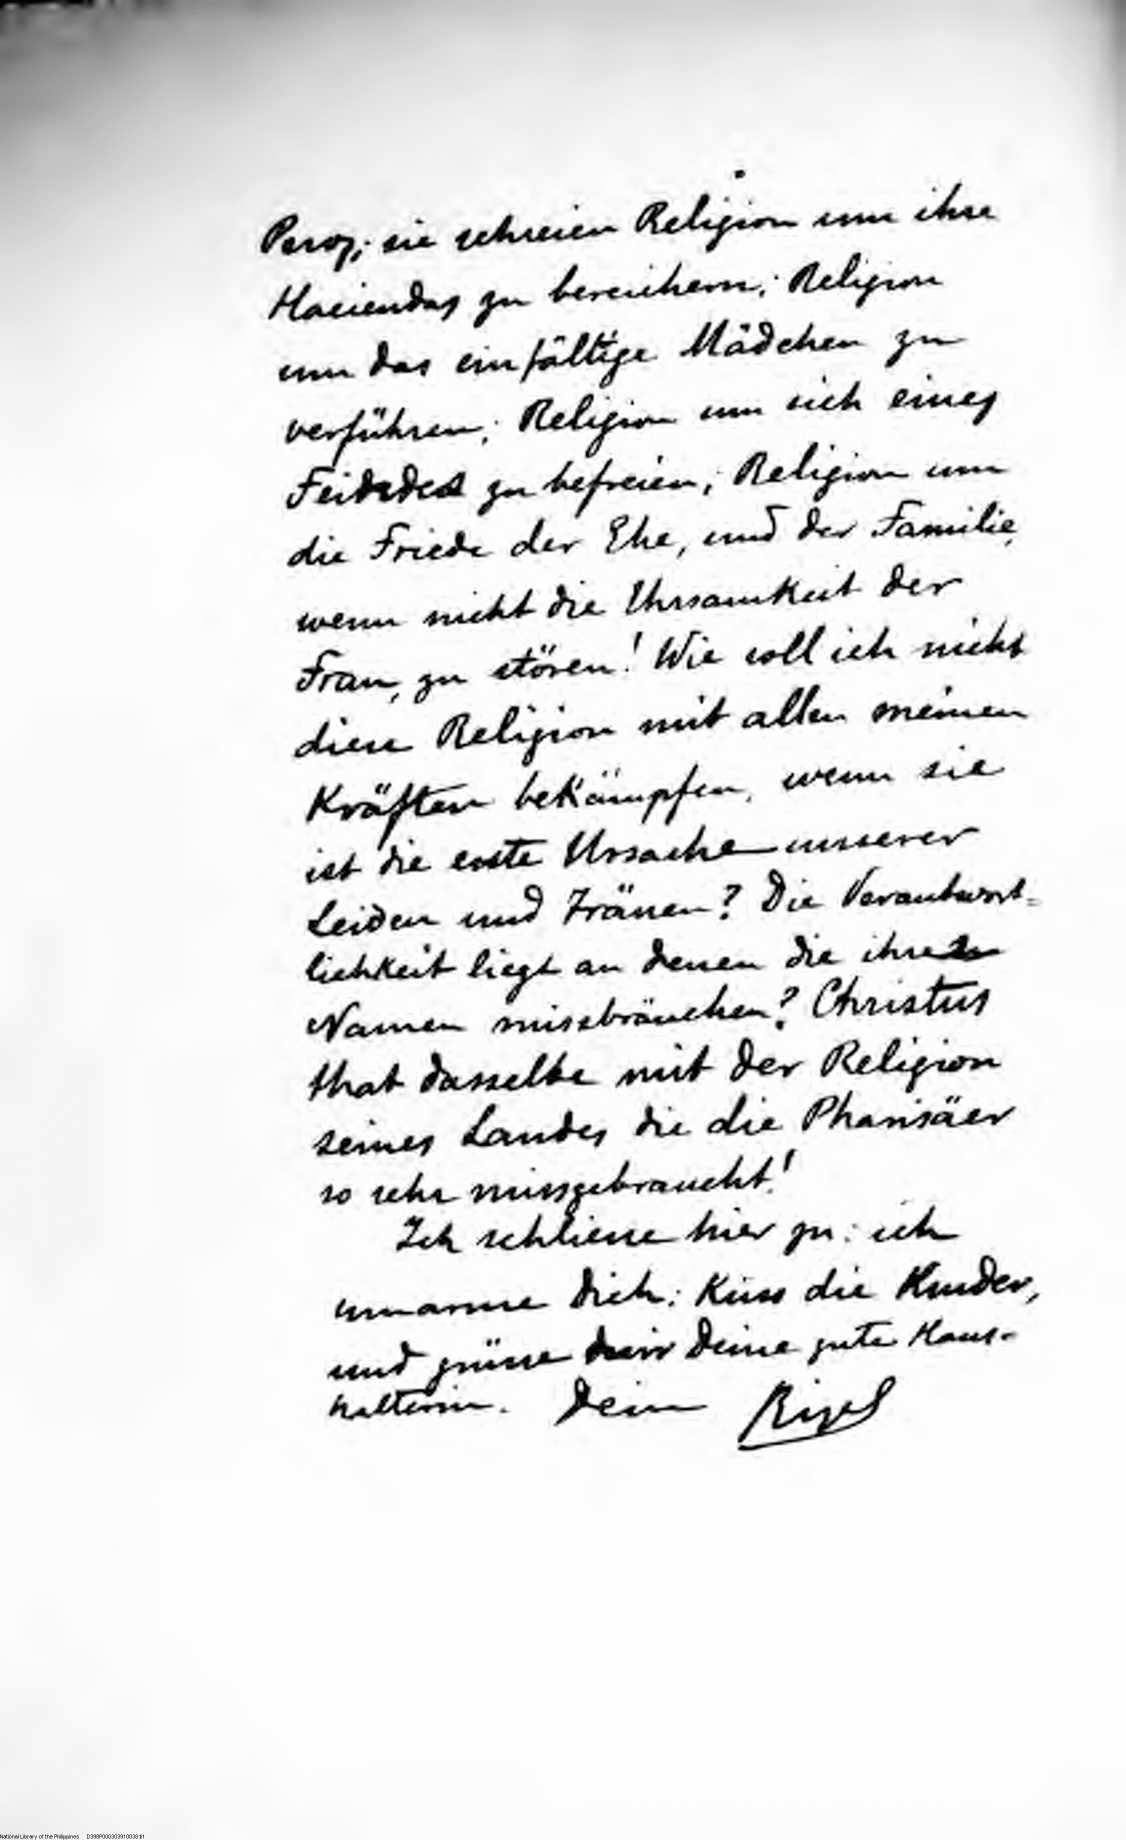 Perez; sie schreien Religion um ihre
Haciendas zu bereichern; Religion
um das einfältige Mädchen zu
verführen; Religion um sich eines
Feindes zu befreien; Religion um
die Friede der Ehe, und der Familie,
wenn nicht die Ehrsamkeit der
Frau, zu stören! Wie soll ich nicht
diese Religion mit allen meinen
Kräften bekämpfen, wenn sie
ist die erste Ursache unserer
Leiden und Tränen? Die Verantwort=
lichkeit liegt an denen die ihren
Namen missbräuchen? Christus
that dasselbe mit der Religion
seines Landes die die Pharisäer
so sehr missgebraucht!
Ich schliesse hier zu: ich
umarme Dich: Küss die Kinder,
und grüsse Deine gute Haus-
hälterin. Dein Rizal
National Library of the Philippines